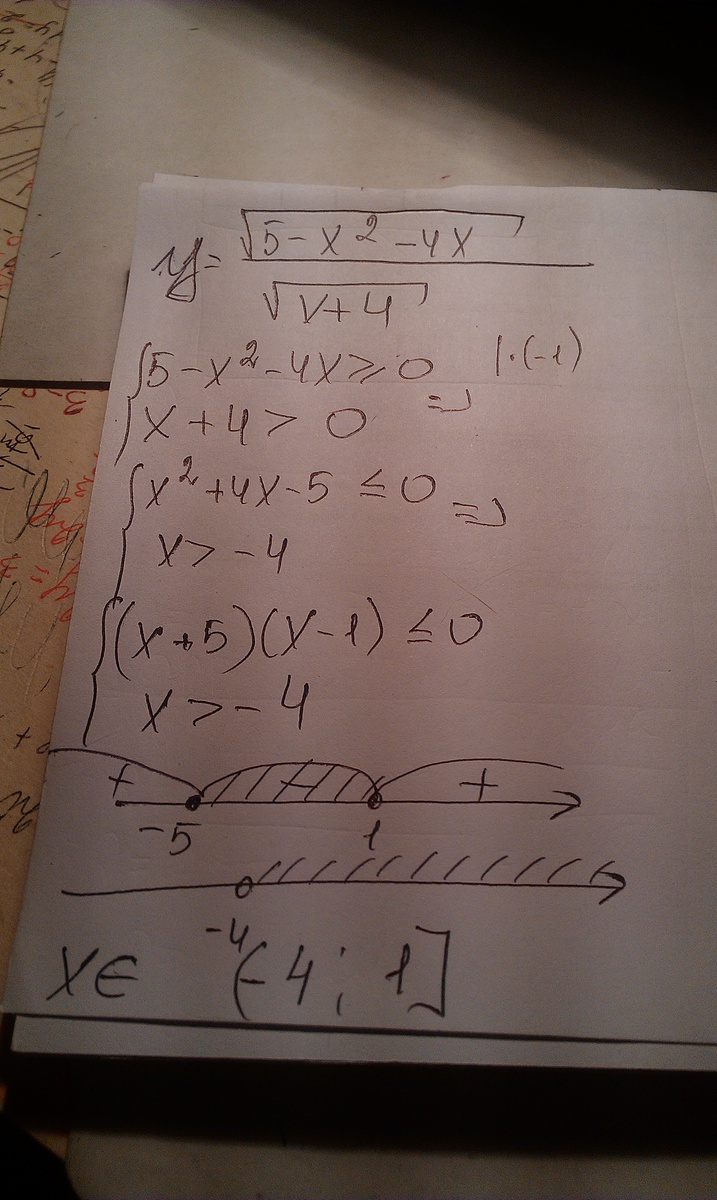 y = √(5 - x² - 4x) / √(x + 4)
{ 5 - x² - 4x ≥ 0 | · (-1)
{ x + 4 > 0 =>
{ x² + 4x - 5 ≤ 0 =>
{ x > -4
{ (x + 5)(x - 1) ≤ 0
{ x > -4
+ - +
-5 1
-4
x ∈ (-4; 1]